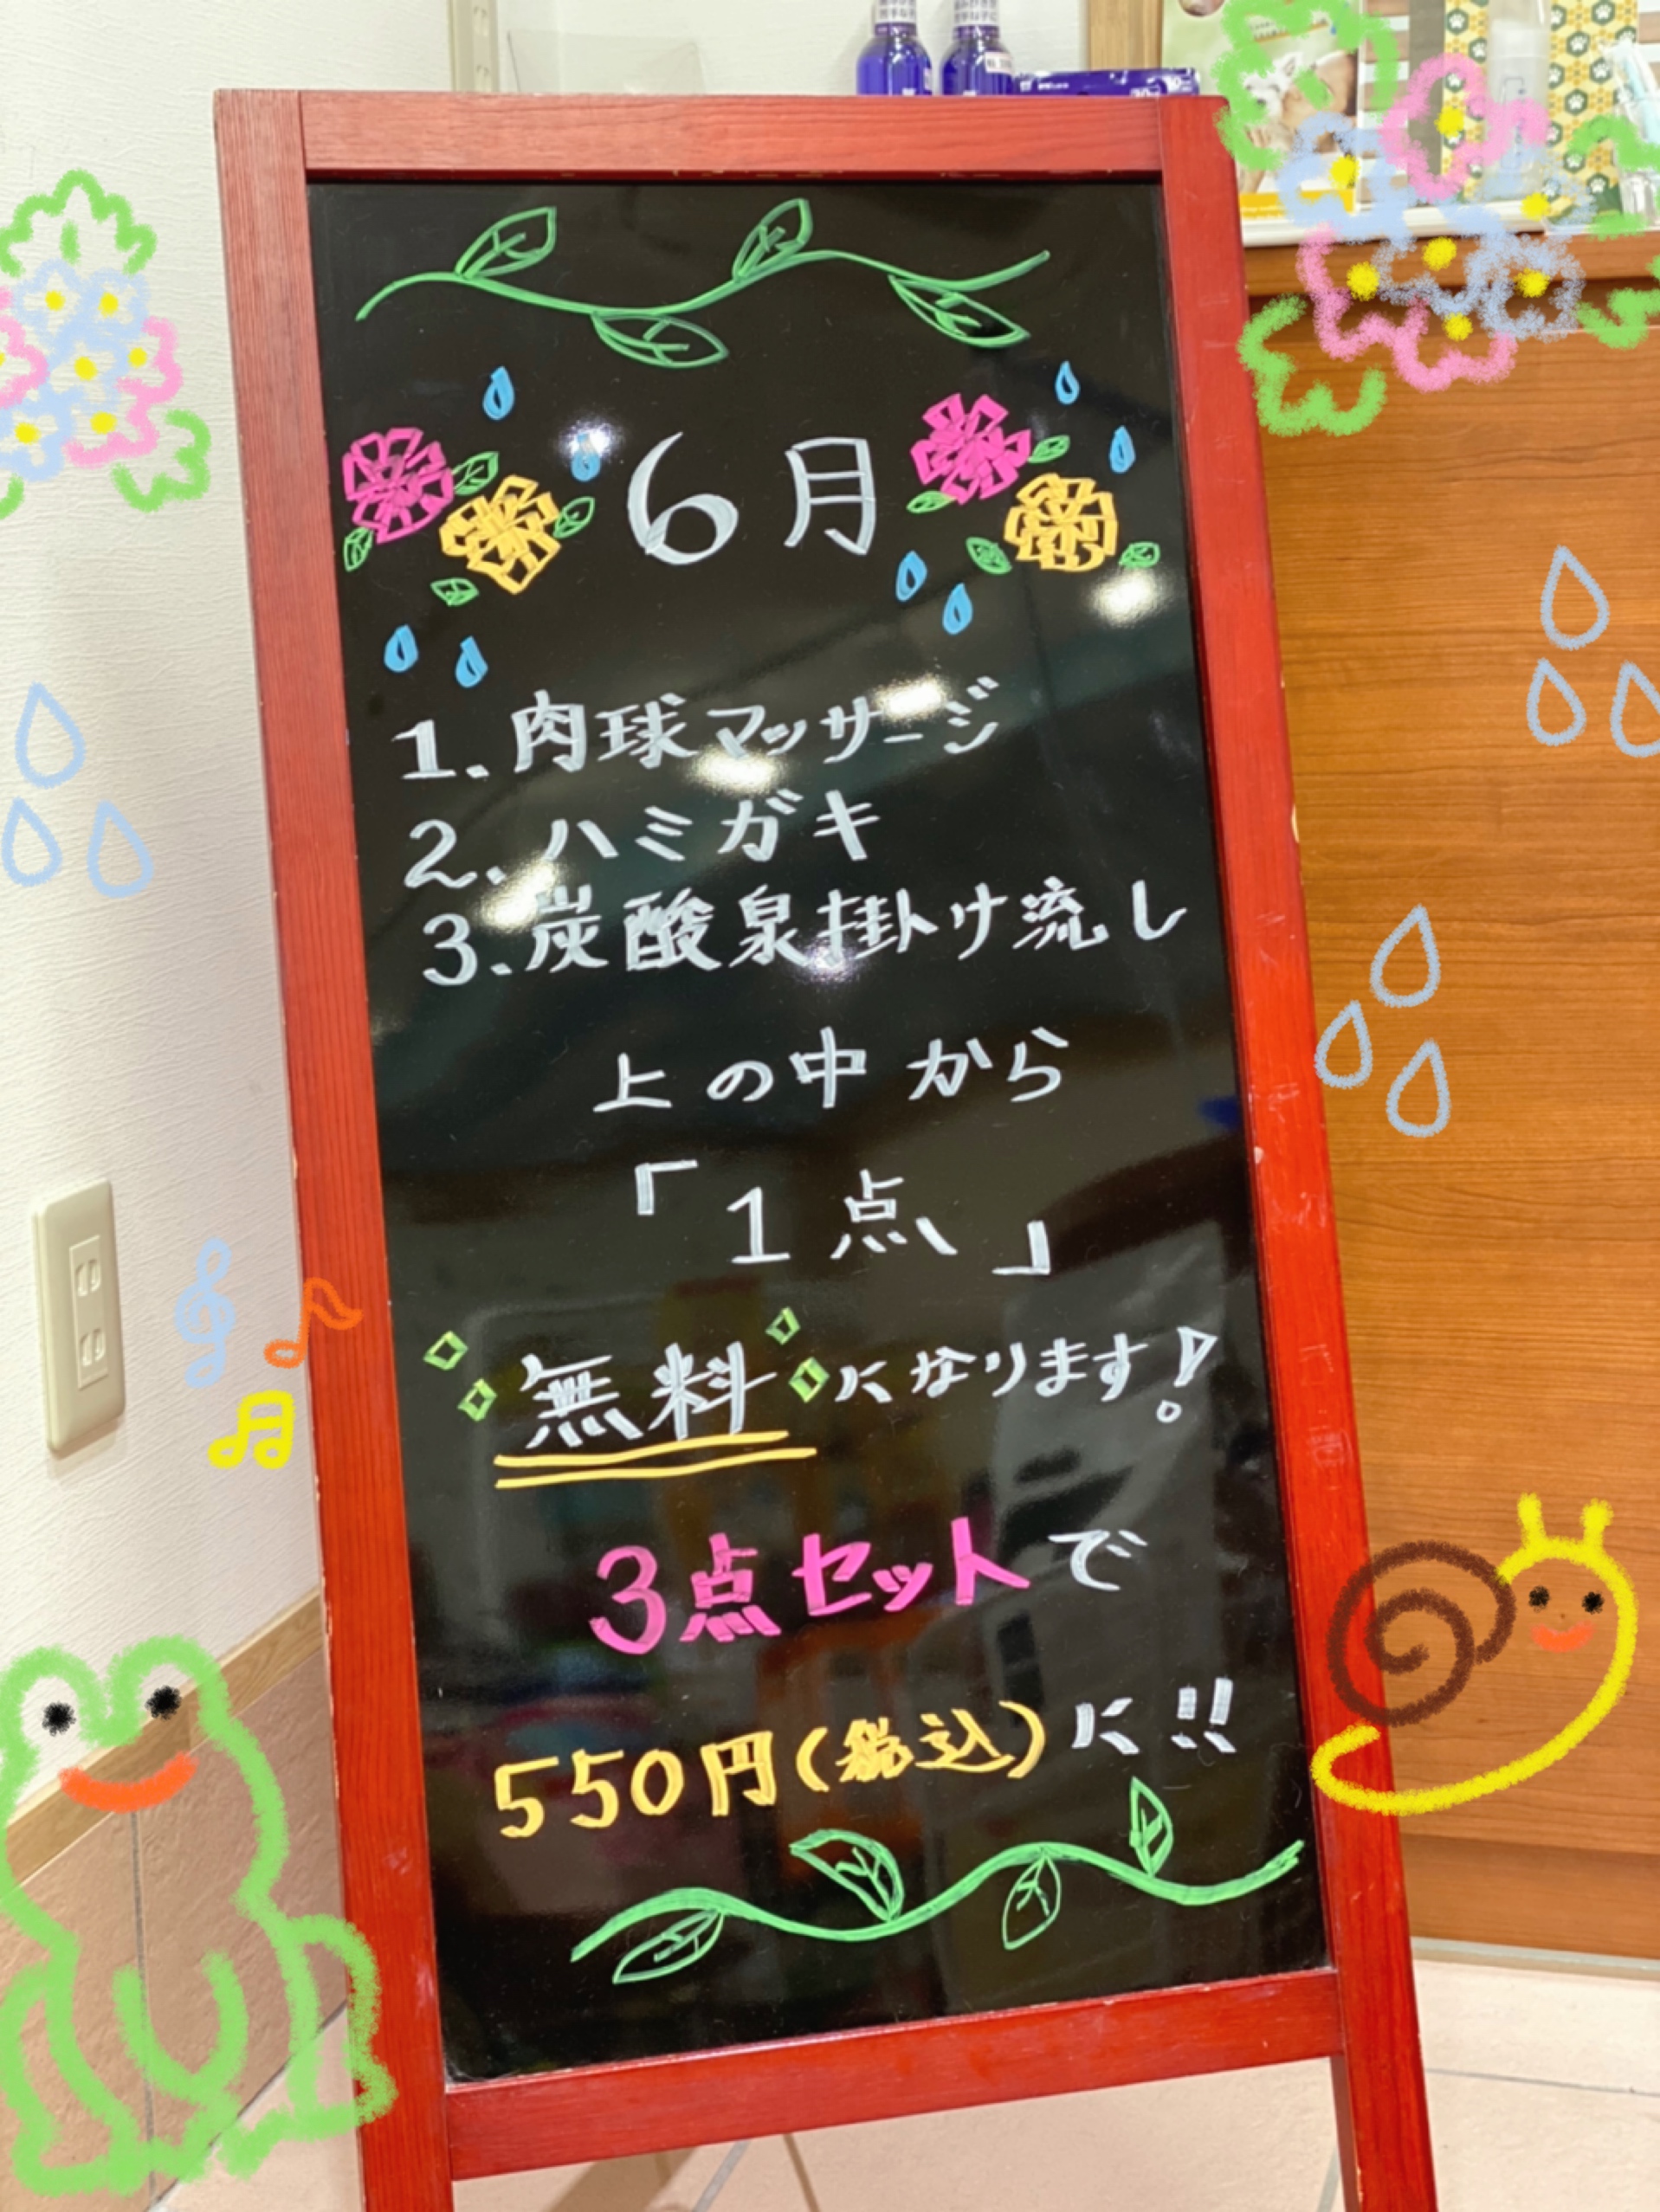 6月
1. 肉球マッサージ
2. ハミガキ
3. 炭酸泉掛け流し
上の中から
「1点」
無料になります!
3点セットで
550円(税込)に!!